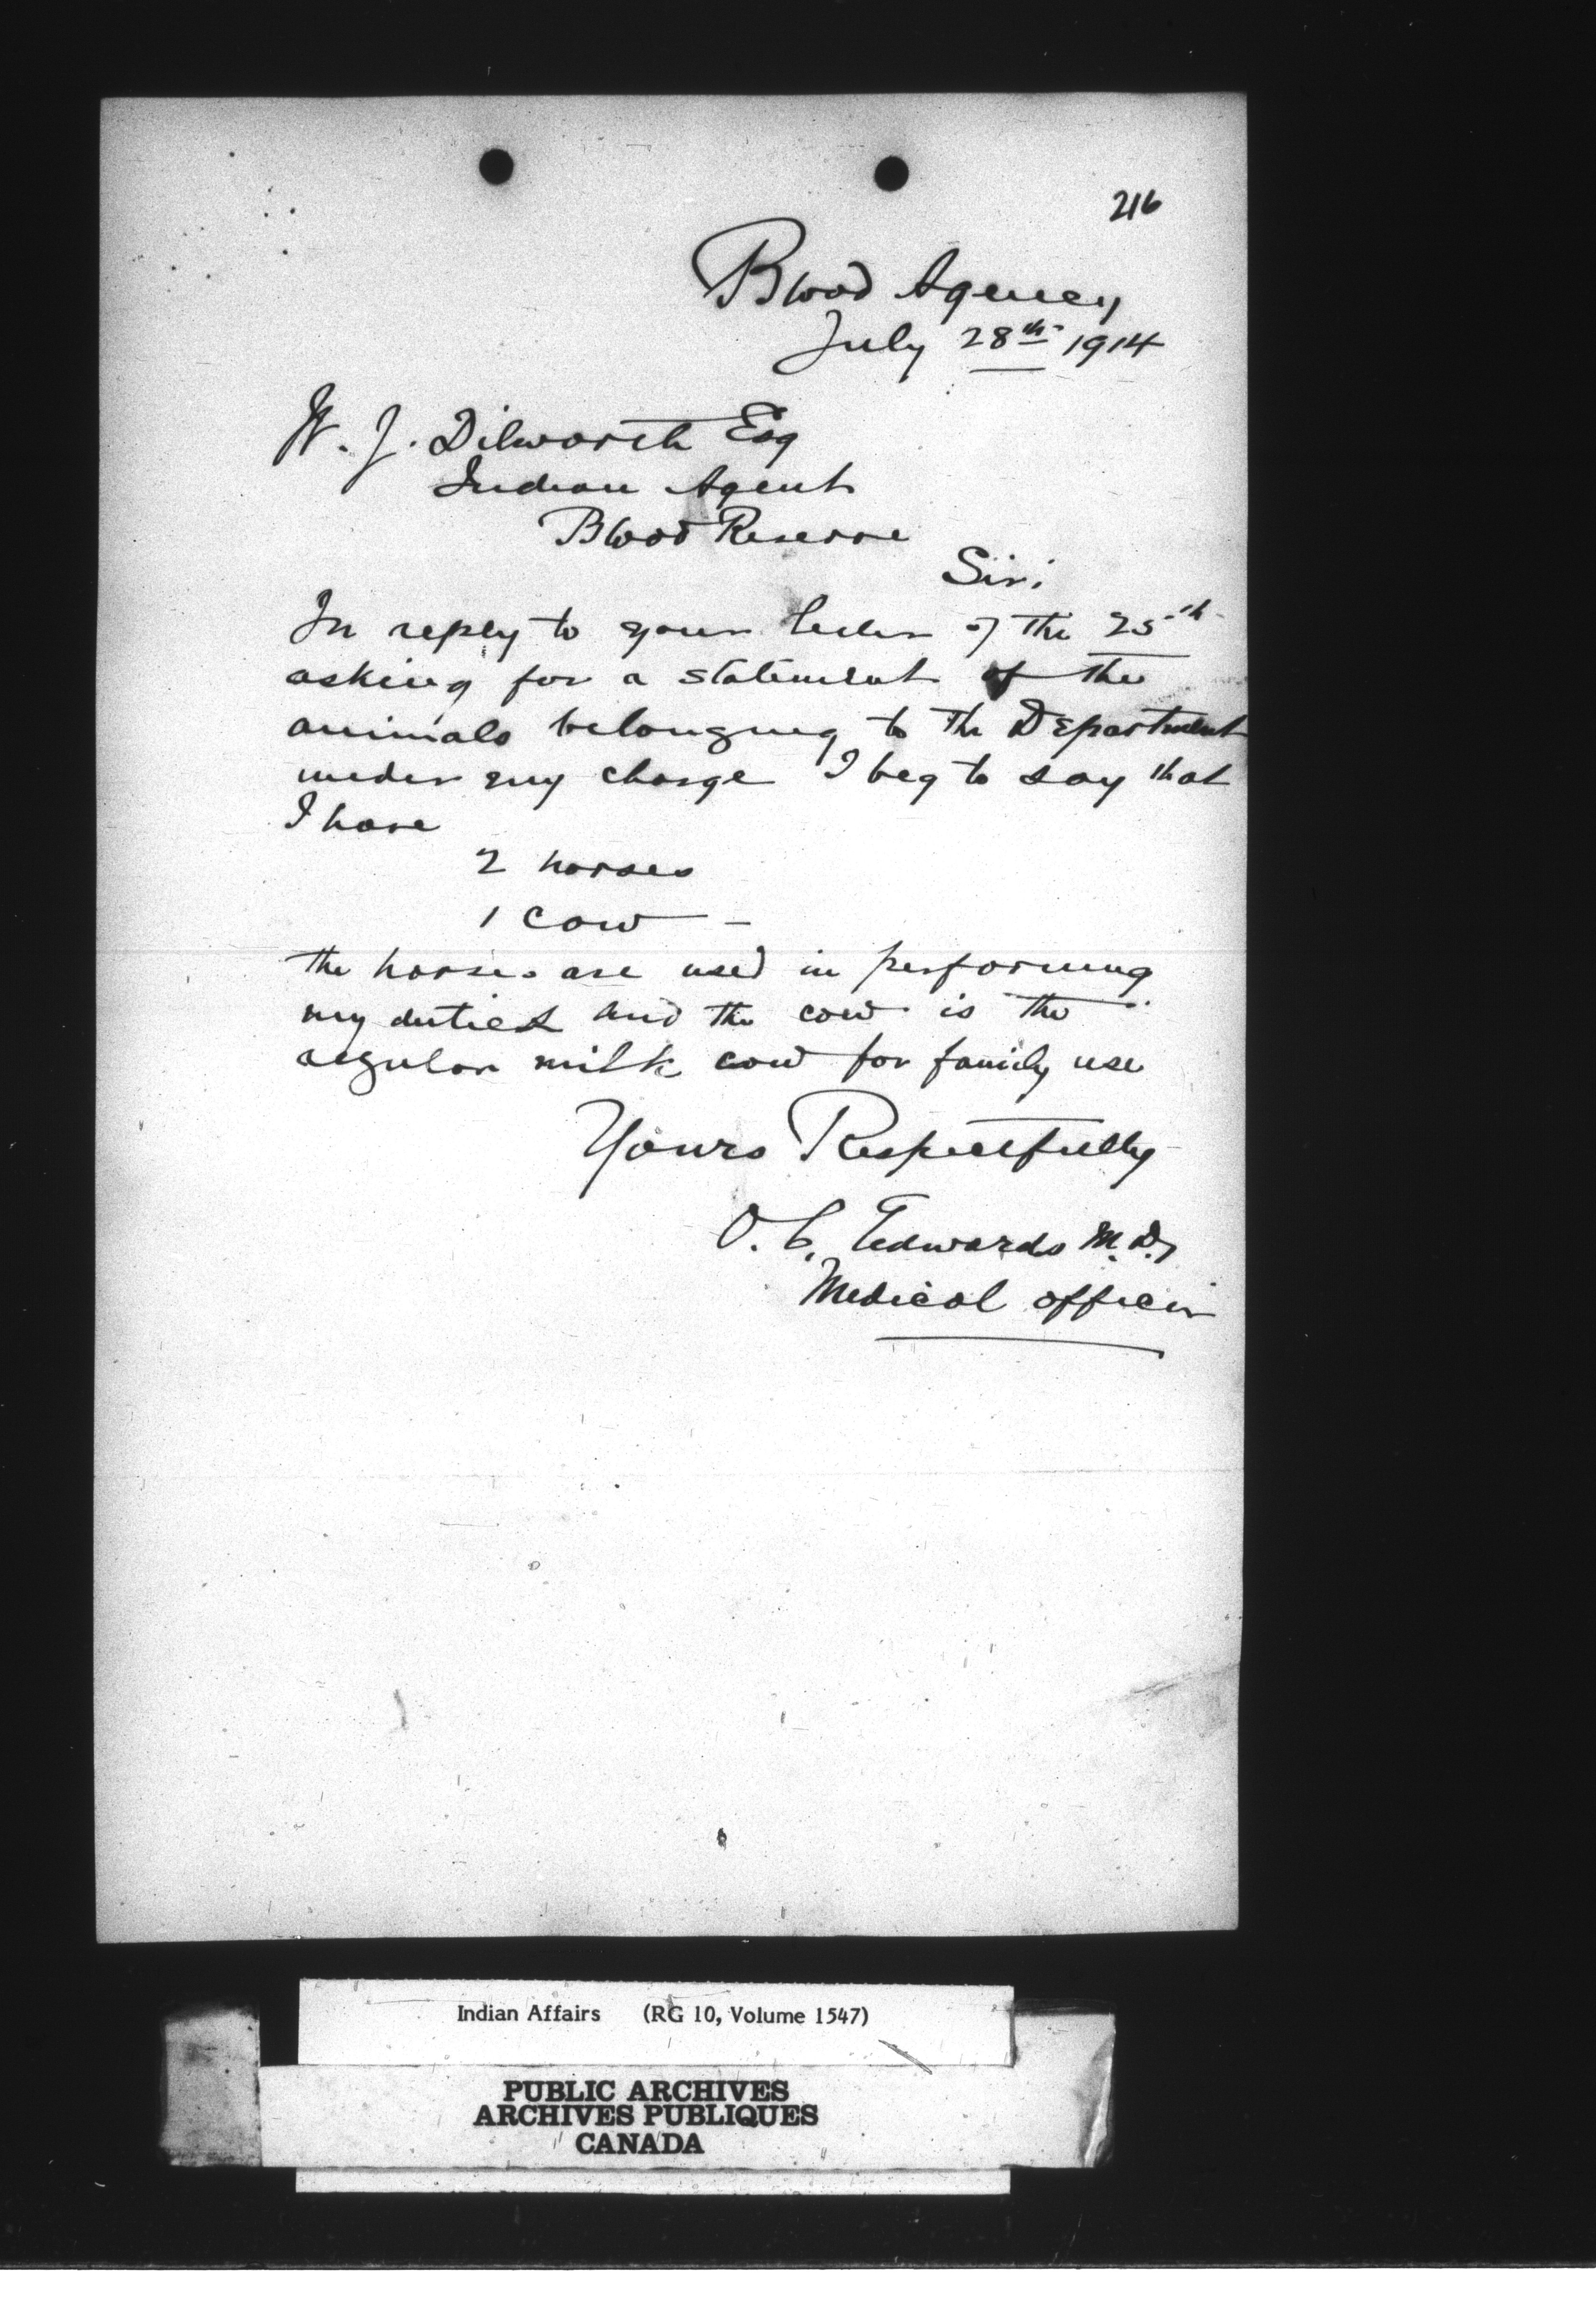 216
Blood Agency
July 28th 1914
W. J. Dilworth Esq
Indian Agent
Blood Reserve
Sir:
In reply to your letter of the 25th
asking for a statement of the
animals belonging to the Department
under my charge I beg to say that
I have
2 horses
1 cow –
the horses are used in performing
my duties and the cow is the
regular milk cow for family use
Yours Respectfully
O. C. Edwards M.D.
Medical officer
Indian Affairs (RG 10, Volume 1547)
PUBLIC ARCHIVES
ARCHIVES PUBLIQUES
CANADA